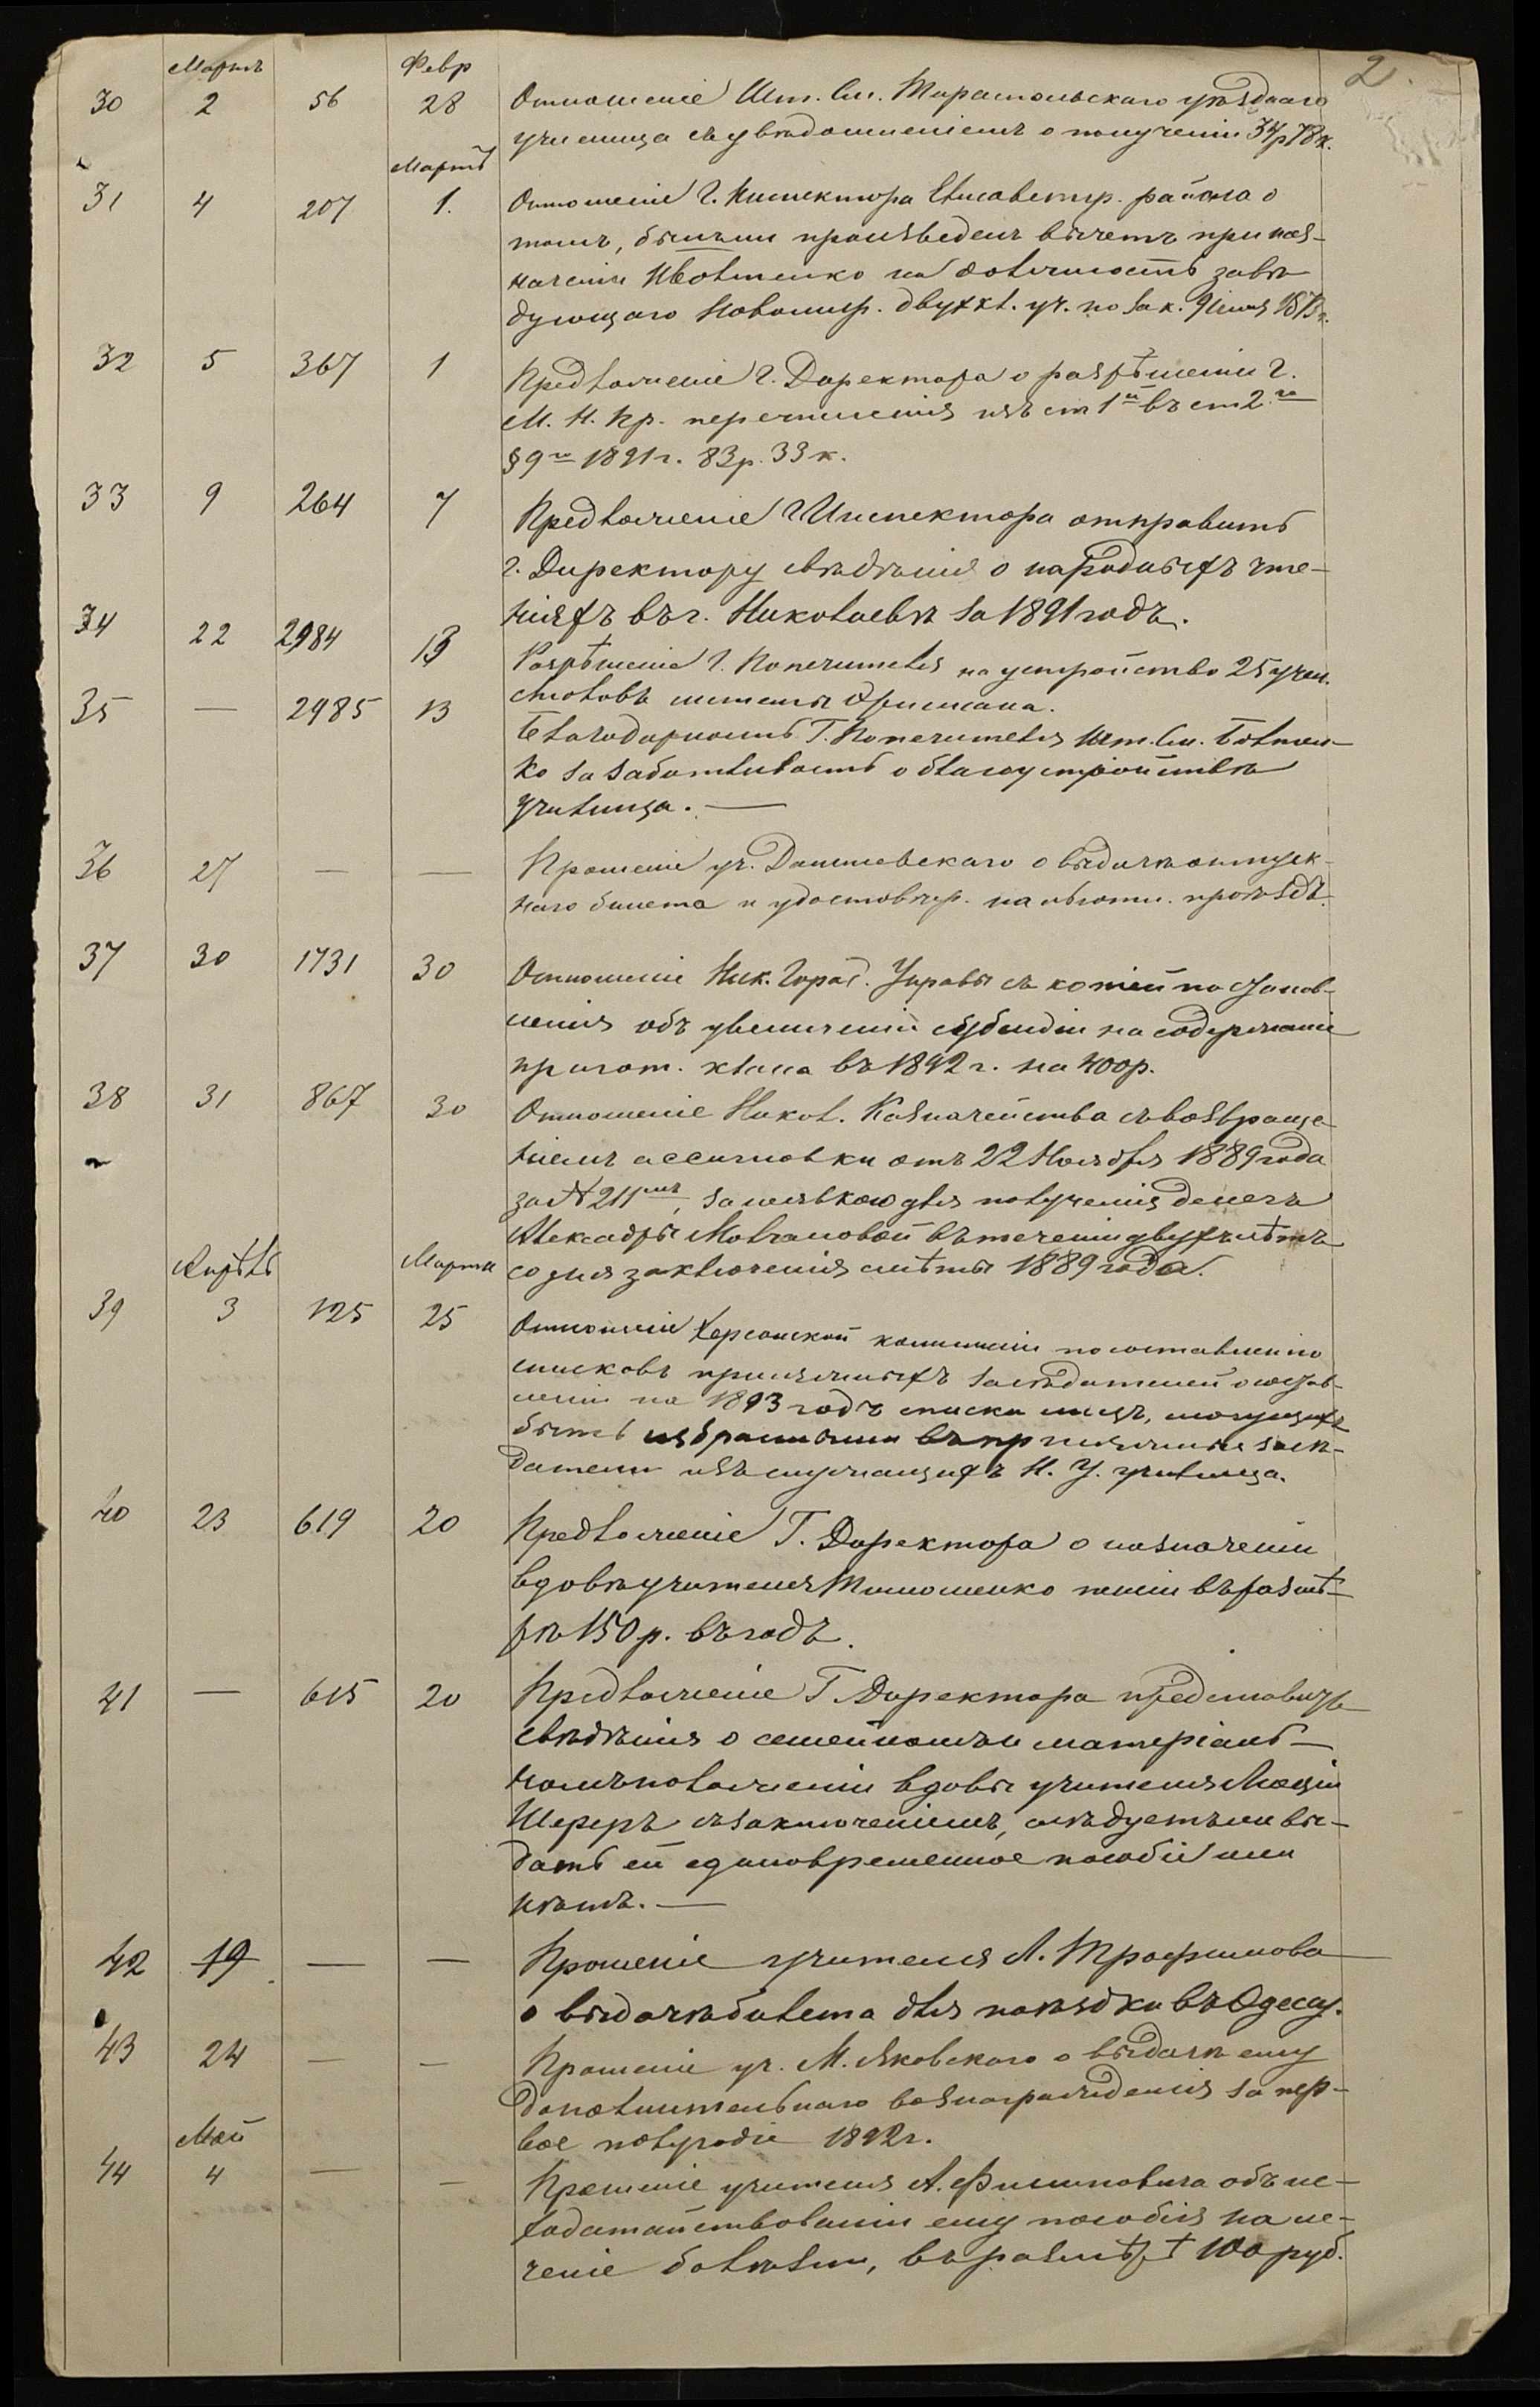 2.
Мартъ Февр
30 2 56 28 Отношеніе Шт. См. Тираспольскаго уѣзднаго
училища съ увѣдомленіемъ о полученіи 34р 78к.
Мартъ
31 4 207 1. Отношеніе Г. Инспектора Елисаветгр. района о
томъ, былъ ли произведенъ вычетъ при наз-
наченіи на должность завѣ-
дующаго Новомир. двухкл. уч. по зак. 9 іюня 1873г.
32 5 367 1 Предложеніе Г. Директора о разрѣшеніи Г.
М. Н. Пр. перечисленія изъ ст 1й въ ст 2ю
§ 9го 1891 г. 83 р. 33 к.
33 9 264 7 Предложеніе Г Инспектора отправить
г. Директору свѣдѣнія о народныхъ чте-
ніяхъ въ г. Николаевѣ за 1891 годъ.
34 22 2984 13 Разрѣшеніе Г. Попечителя на устройство 25 учен.
столовъ системы Эрисмана.
35 — 2985 13 Благодарность Г. Попечителя Шт. См. Болтен-
ко за заботливость о благоустройствѣ
училища. —
36 27 — — Прошеніе уч. Данилевскаго о выдачѣ отпуск-
наго билета и удостовѣр. на льготн. проѣздъ.
37 30 1731 30 Отношеніе Ник. Город. Управы съ копіей постанов-
ленія объ увеличеніи субсидіи на содержаніе
пригот. класса въ 1892 г. на 400 р.
38 31 867 30 Отношеніе Никол. Казначейства съ возвраще-
ніемъ ассигновки отъ 22 Ноября 1889 года
за № 211мъ, за неявкою для полученія денегъ
Александры Молчановой въ теченіи двухъ лѣтъ
со дня заключенія смѣты 1889 года.
Апрѣль Марта
39 3 125 25 Отношеніе Херсонской коммиссіи по составленію
списковъ присяжныхъ засѣдателей о состав-
леніи на 1893 годъ списка лицъ, могущихъ
быть избранными въ присяжные засѣ-
датели изъ служащихъ Н. У. училища.
40 23 619 20 Предложеніе Г. Директора о назначеніи
вдовѣ учителя Тимошенко пенсіи въ размѣ-
рѣ 150 р. въ годъ.
41 — 615 20 Предложеніе Г. Директора представить
свѣдѣнія о семейномъ и матеріаль-
номъ положеніи вдовы учителя
Шереръ съ заключеніемъ, слѣдуетъ ли вы-
дать ей единовременное пособіе или
нѣтъ. —
42 19 — — Прошеніе учителя А. Трофимова
о выдачѣ билета для поѣздки въ Одессу.
43 24 — — Прошеніе уч. М. Яковскаго о выдачѣ ему
дополнительнаго вознагражденія за пер-
вое полугодіе 1892 г.
Май
44 4 — — Прошеніе учителя А. Филиповича объ ис-
ходатайствованіи ему пособія на ле-
ченіе болѣзни, въ размѣрѣ 100 руб.